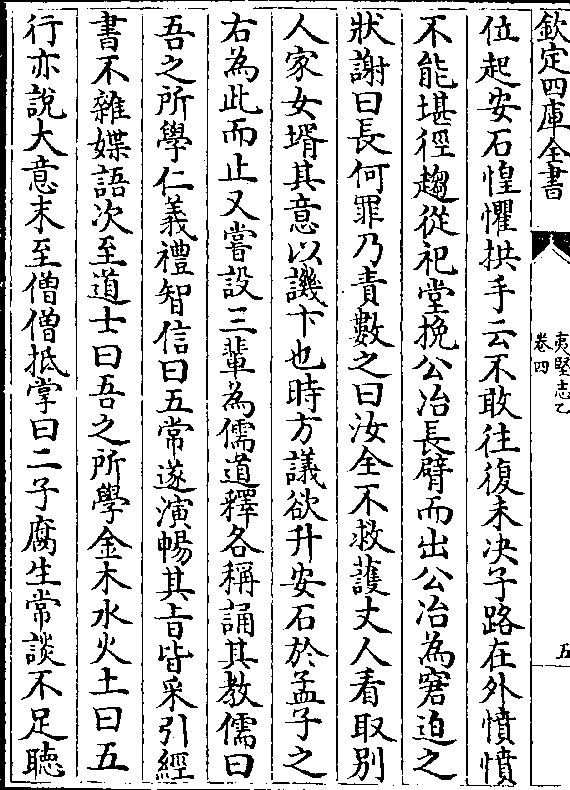 欽定四庫全書
夷堅志乙
卷四
五
位起安石惶懼拱手云不敢往復未决子路在外憤憤
不能堪徑趨從祀堂挽公冶長臂而出公冶為窘迫之
狀謝曰長何罪乃責數之曰汝全不救䕶丈人看取别
人家女壻其意以譏卞也時方議欲升安石於孟子之
右為此而止又嘗設三輩為儒道釋各稱誦其教儒曰
吾之所學仁義禮智信曰五常遂演暢其旨皆采引經
書不雜媟語次至道士曰吾之所學金木水火土曰五
行亦說大意末至僧僧抵掌曰二子腐生常談不足聽